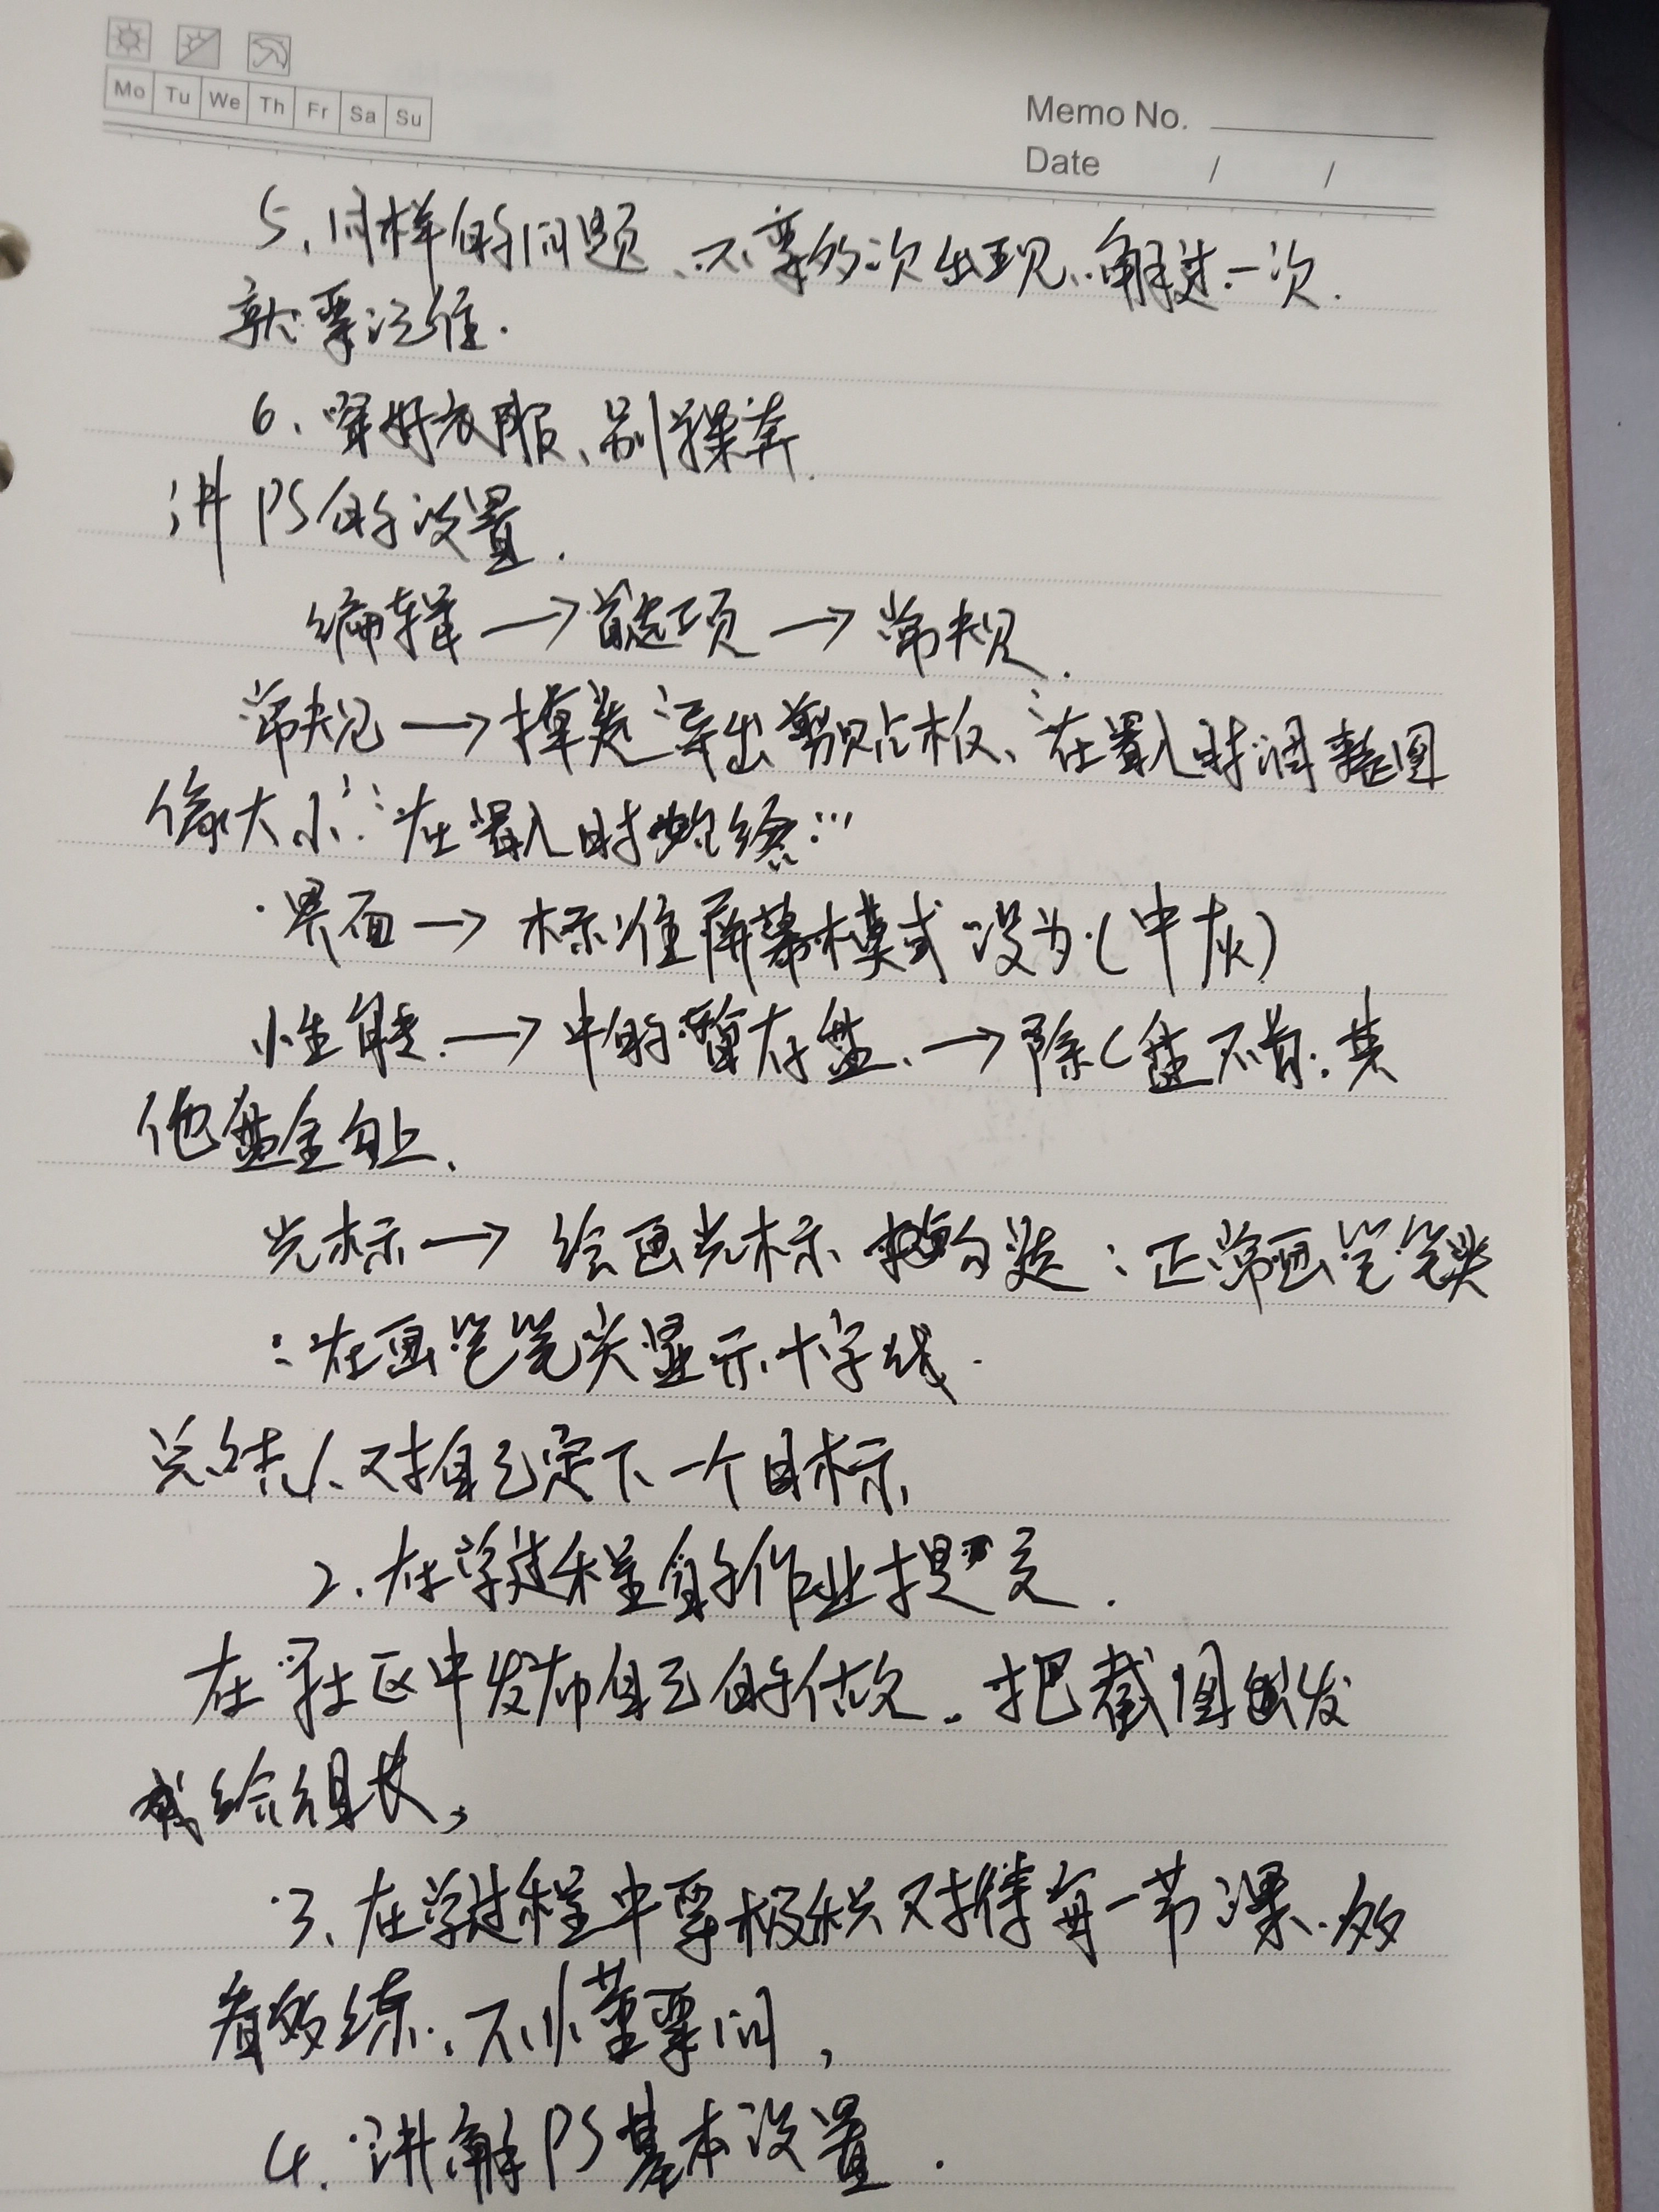 Mo Tu We Th Fr Sa Su
Memo No.
Date / /
5、同样的问题、不要多次出现、解过一次.
就要记住.
6、穿好衣服、别裸奔.
讲PS的设置.
编辑→首选项→常规.
常规→掉选 导出剪贴板、在置入时调整图
像大小 在置入时始终…
界面→标准屏幕模式 设为(中灰)
性能→中的暂存盘、→除C盘不勾.其
他盘全勾上、
光标→绘画光标 勾选：正常画笔笔尖
：在画笔笔尖显示十字线.
总结1、对自己定下一个目标,
2、在学过程的作业提交.
在社区中发布自己的作业。把截图发
给组长,
3、在学过程中要极积对待每一节课.多
看多练.不懂要问,
4.讲解PS基本设置.